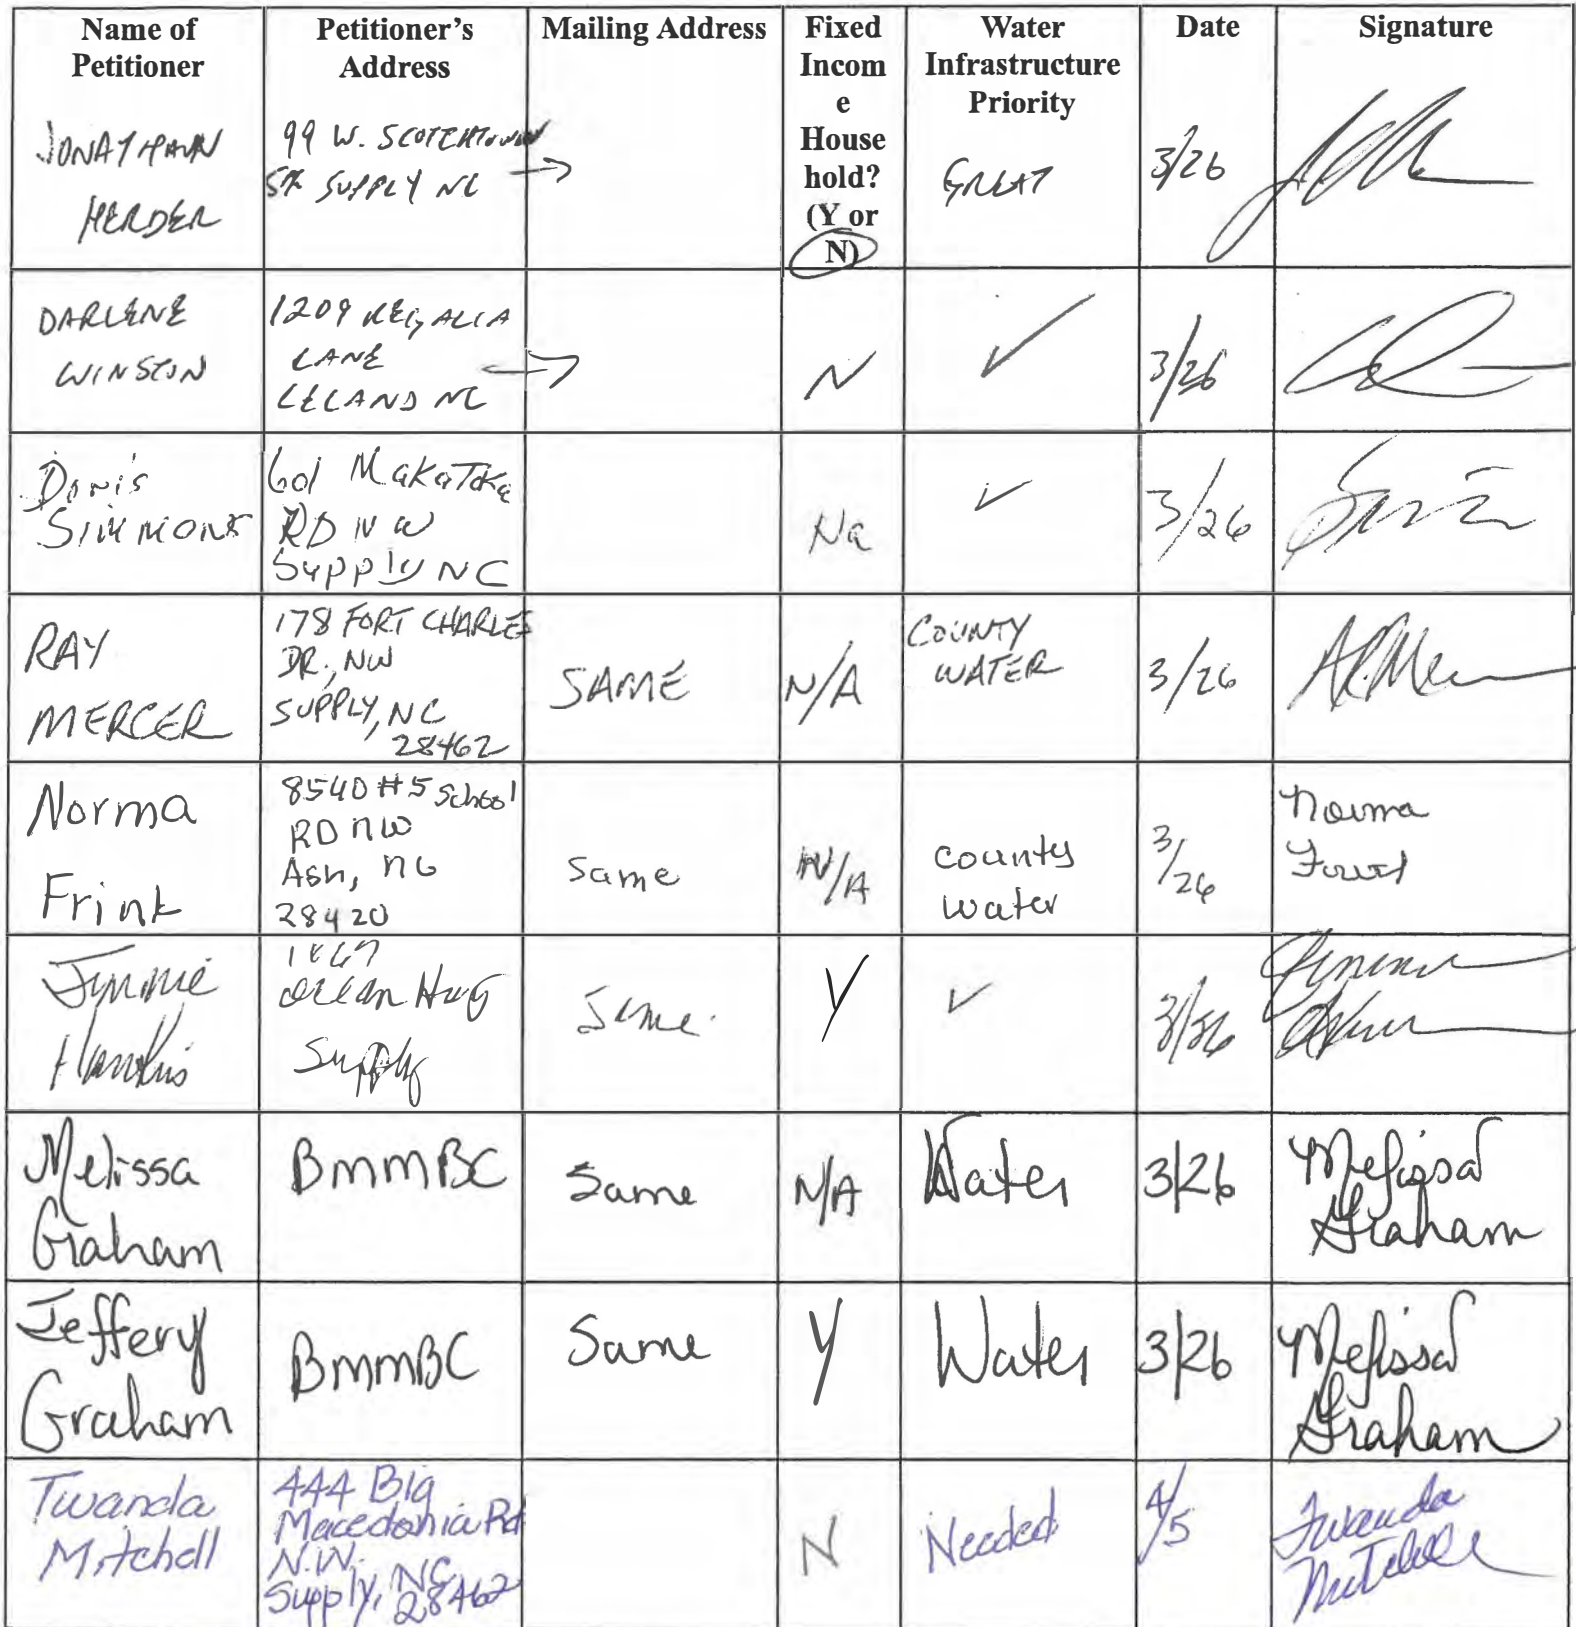 Name of Petitioner
Petitioner's Address
Mailing Address
Fixed Income Household? (Y or N)
Water Infrastructure Priority
Date
Signature
JONATHAN
HERDER
99 W. SCOTCHTOWN
SUPPLY NC
GREAT
3/26
DARLENE
WINSTON
1209 REGALIA
LANE
LELAND NC
N
✓
3/26
Doris
SIMMONS
601 MakaToka
RD NW
Supply NC
Na
✓
3/26
RAY
MERCER
178 FORT CHARLES
DR., NW
SUPPLY, NC
28462
SAME
N/A
COUNTY
WATER
3/26
Norma
Frink
8540 #5 School
RD NW
Ash, NC
28420
Same
N/A
County
water
3/26
Norma
Jimmie
Hankins
Ocean Hwy
Supply
Same
Y
✓
3/26
Melissa
Graham
BmmBC
Same
N/A
Water
3/26
Melissa
Graham
Jeffery
Graham
BmmBC
Same
Y
Water
3/26
Melissa
Graham
Twanda
Mitchell
444 Big
Macedonia Rd
N.W.
Supply, NC
28462
N
Needed
4/5
Twanda
Mitchell